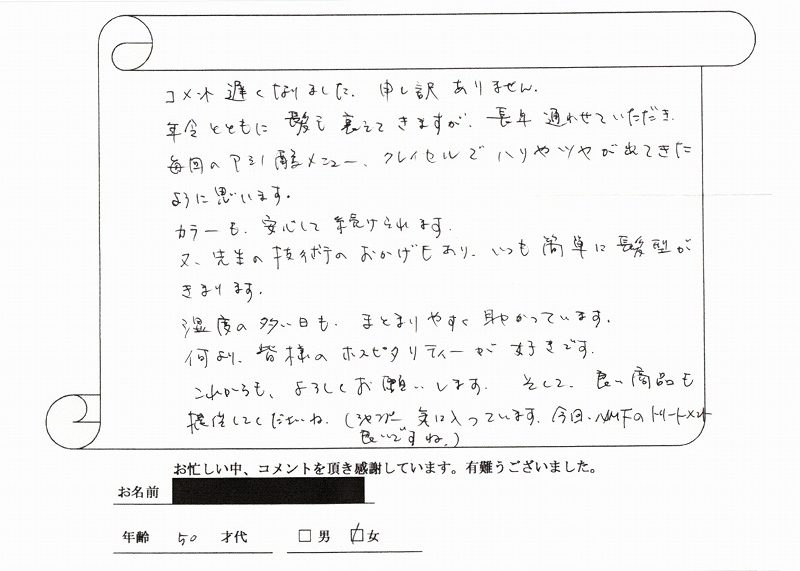 コメント遅くなりました。申し訳ありません。
年令とともに髪も衰えてきますが、長年通わせていただき、
毎回の 酸メニュー、クレイセルでハリやツヤが出てきた
ように思います。
カラーも、安心して続けられます。
又、先生の技術のおかげもあり、いつも簡単に髪型が
きまります。
湿度の多い日も、まとまりやすく助かっています。
何より、皆様のホスピタリティーが好きです。
これからも、よろしくお願いします。そして、良い商品も
提供してくださいね。(シャンプー気に入っています。今回、 のトリートメント
良いですね。)
お忙しい中、コメントを頂き感謝しています。有難うございました。
お名前
年齢 50 才代 □男 □女